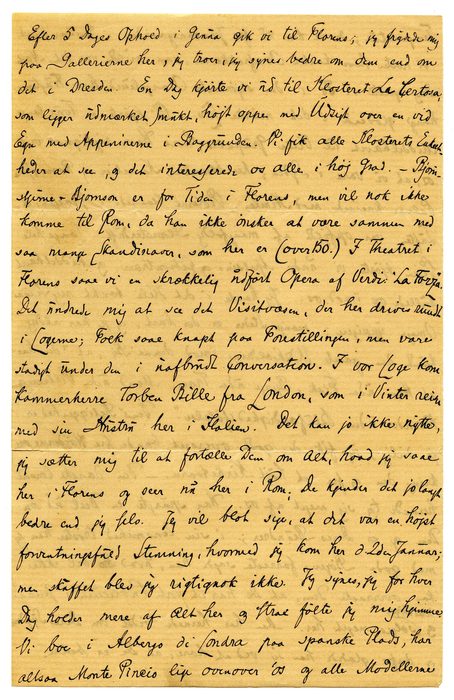 Efter 5 Dages Ophold i Genua gik vi til Florens; jeg frydede mig
paa Gallerierne her, jeg troer, jeg synes bedre om dem end om
det i Dresden En Dag kjörte vi ud til Klosteret La Certosa,
som ligger udmærket smukt, höjt oppe med Udsigt over en vid
Egn med Appeninerne i Baggrunden. Vi fik alle Klosterets
heder at see, og det interesserede os alle i höj Grad. – Björn-
stjerne Björnson er for Tiden i Florens, men vil nok ikke
komme til Rom, da han ikke önsker at være sammen med
saa mange Skandinaver, som her er (over 150.) I Theatret i
Florens saae vi en skrækkelig udfört Opera af Verdi: La Forza.
Det undrede mig at see det Visitvæsen, der her drives rundt
i Logerne; Folk saae knapt paa Forestillingen, men vare
stadigt under den i uafbrudt Conversation. I vor Loge kom
Kammerherre Torben Bille fra London, som i Vinter reiser
med sin Hustru her i Italien. Det kan jo ikke nytte,
jeg sætter mig til at fortælle Dem om Alt, hvad jeg saae
her i Florens og seer nu her i Rom; De kjender det jo langt
bedre end jeg selv. Jeg vil blot sige, at det var en höjst
forventningsfuld Stemning, hvormed jeg kom her d 2den Januar;
men skuffet blev jeg rigtignok ikke. Jeg synes, jeg for hver
Dag holder mere af Alt her og strax fölte jeg mig hjemme.
Vi boe i Albergo di Londra paa spanske Plads, har
altsaa Monte Pincio lige ovenover os og alle Modellerne